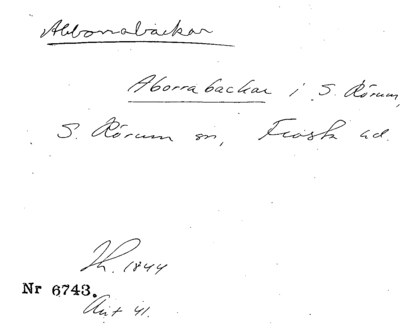 Abborrabackar
Aborrabackar i S. Rörum,
S. Rörum sn, Frosta hd.
Th. 1844
Nr 6743.
Ant 41.